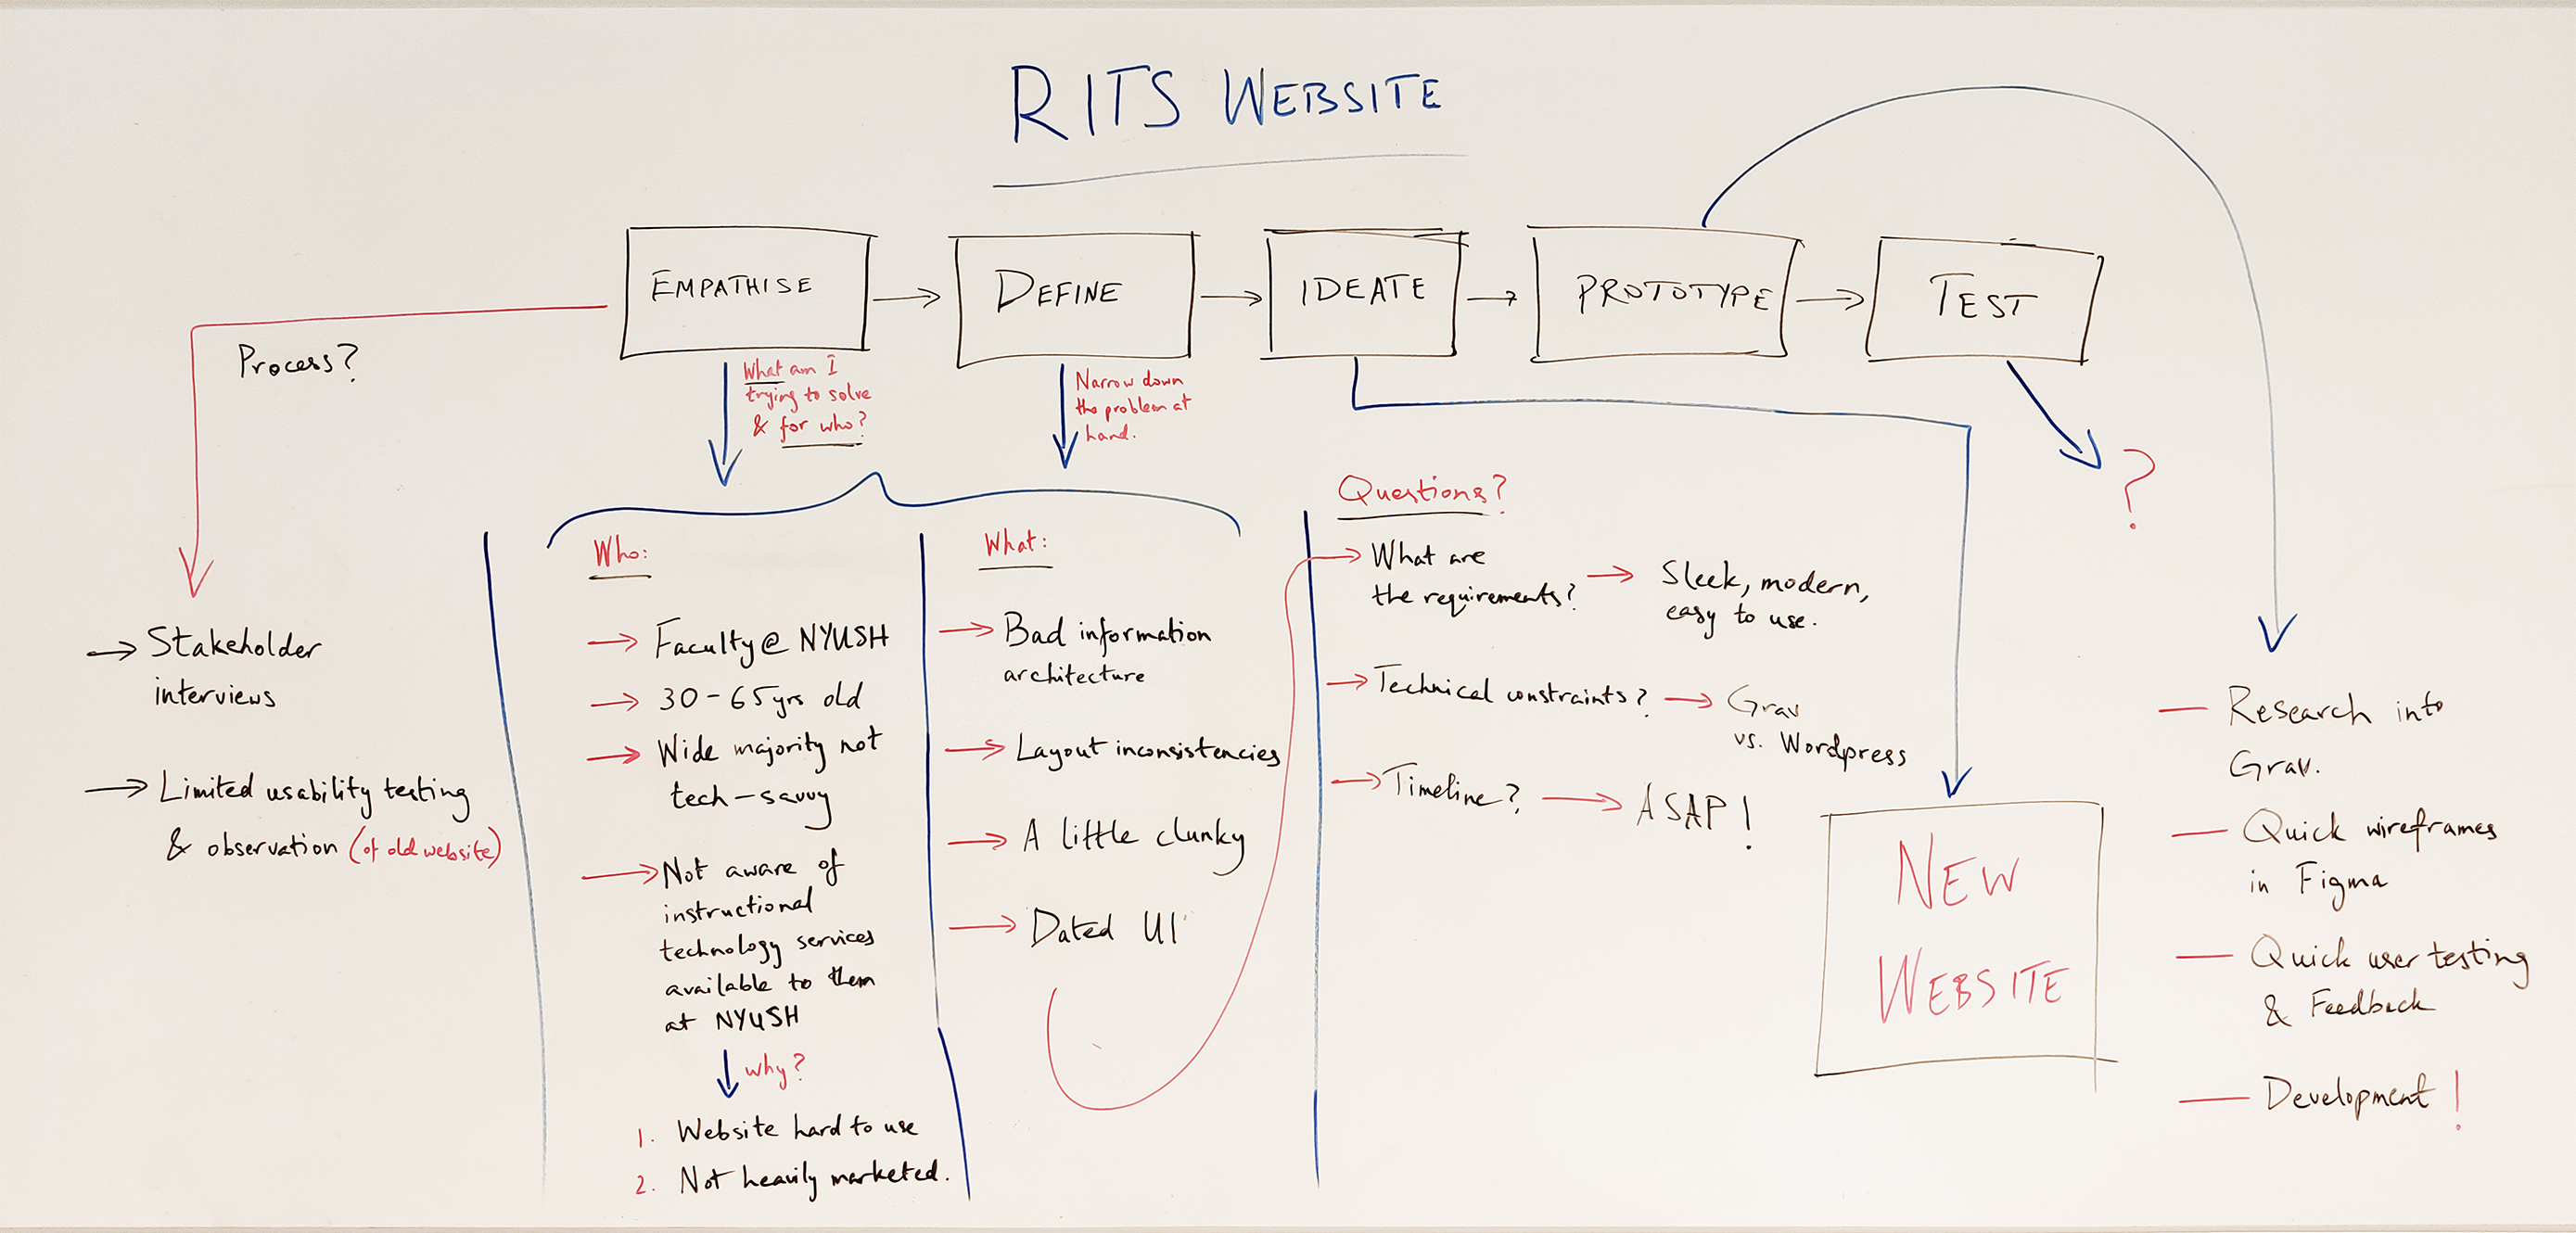 RITS WEBSITE
EMPATHISE
DEFINE
IDEATE
PROTOTYPE
TEST
Process?
What am I
trying to solve
& for who?
Narrow down
the problem at
hand.
?
Stakeholder
interviews
Limited usability testing
& observation (of old website)
Who:
Faculty @ NYUSH
30-65yrs old
Wide majority not
tech-savvy
Not aware of
instructional
technology services
available to them
at NYUSH
why?
1. Website hard to use
2. Not heavily marketed.
What:
Bad information
architecture
Layout inconsistencies
A little clunky
Dated UI
Questions?
What are
the requirements?
Sleek, modern,
easy to use.
Technical constraints?
Grav
vs. Wordpress
Timeline?
ASAP!
NEW
WEBSITE
— Research into
Grav.
— Quick wireframes
in Figma
— Quick user testing
& Feedback
— Development!